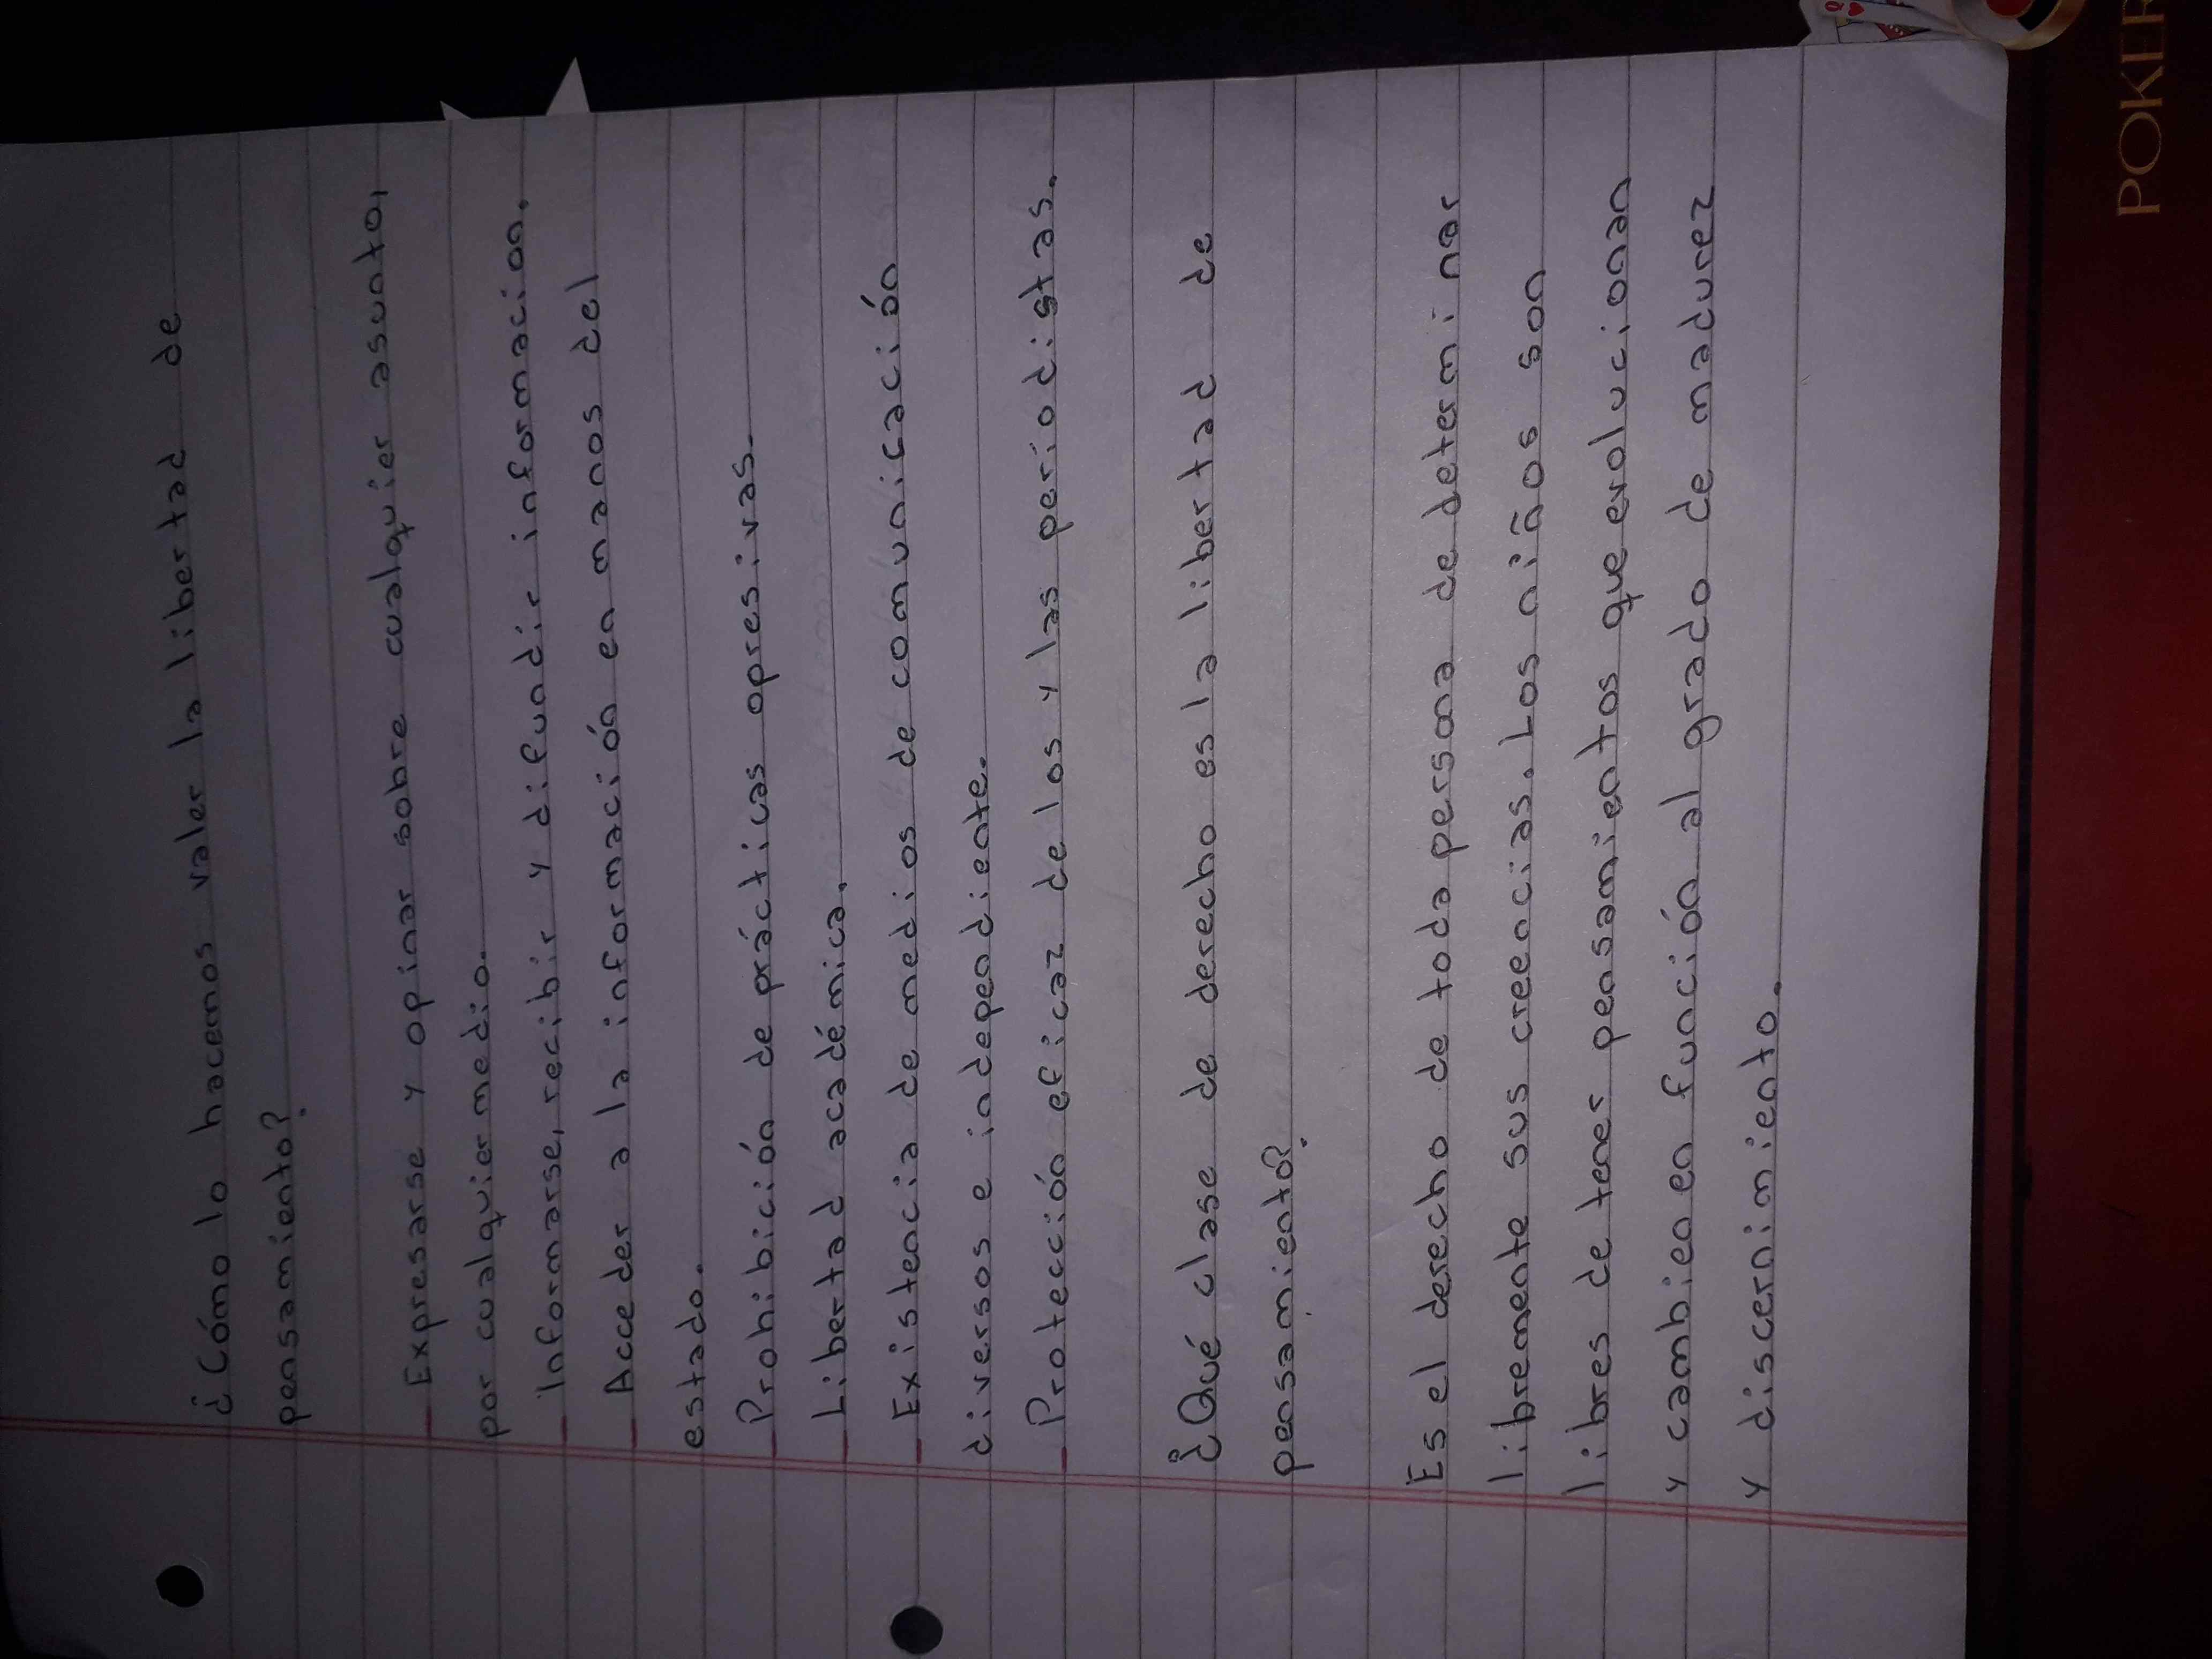 ¿Cómo lo hacemos valer la libertad de
pensamiento?
- Expresarse y opinar sobre cualquier asunto,
por cualquier medio.
- Informarse, recibir y difundir informacion.
- Acceder a la información en manos del
estado.
- Prohibición de prácticas opresivas.
- Libertad académica.
- Existencia de medios de comunicación
diversos e independiente.
- Protección eficaz de los y las periodistas.
¿Qué clase de derecho es la libertad de
pensamiento?
Es el derecho de toda persona de determinar
libremente sus creencias. Los niños son
libres de tener pensamientos que evolucionan
y cambien en función al grado de madurez
y discernimiento.
POKER
Q